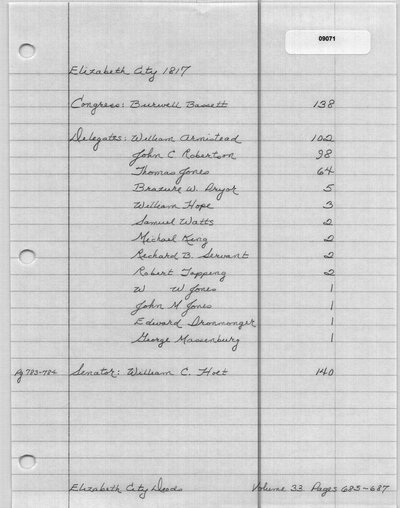 09071
Elizabeth City 1817
Congress: Burwell Bassett 138
Delegates: William Armistead 102
John C Robertson 98
Thomas Jones 64
Brazure W. Pryor 5
William Hope 3
Samuel Watts 2
Michael King 2
Richard B. Servant 2
Robert Topping 2
W W Jones 1
John M Jones 1
Edward 1
George Massenburg 1
Pg 783-784 Senator: William C. Holt 140
Elizabeth City Deeds Volume 33 Pages 685-687